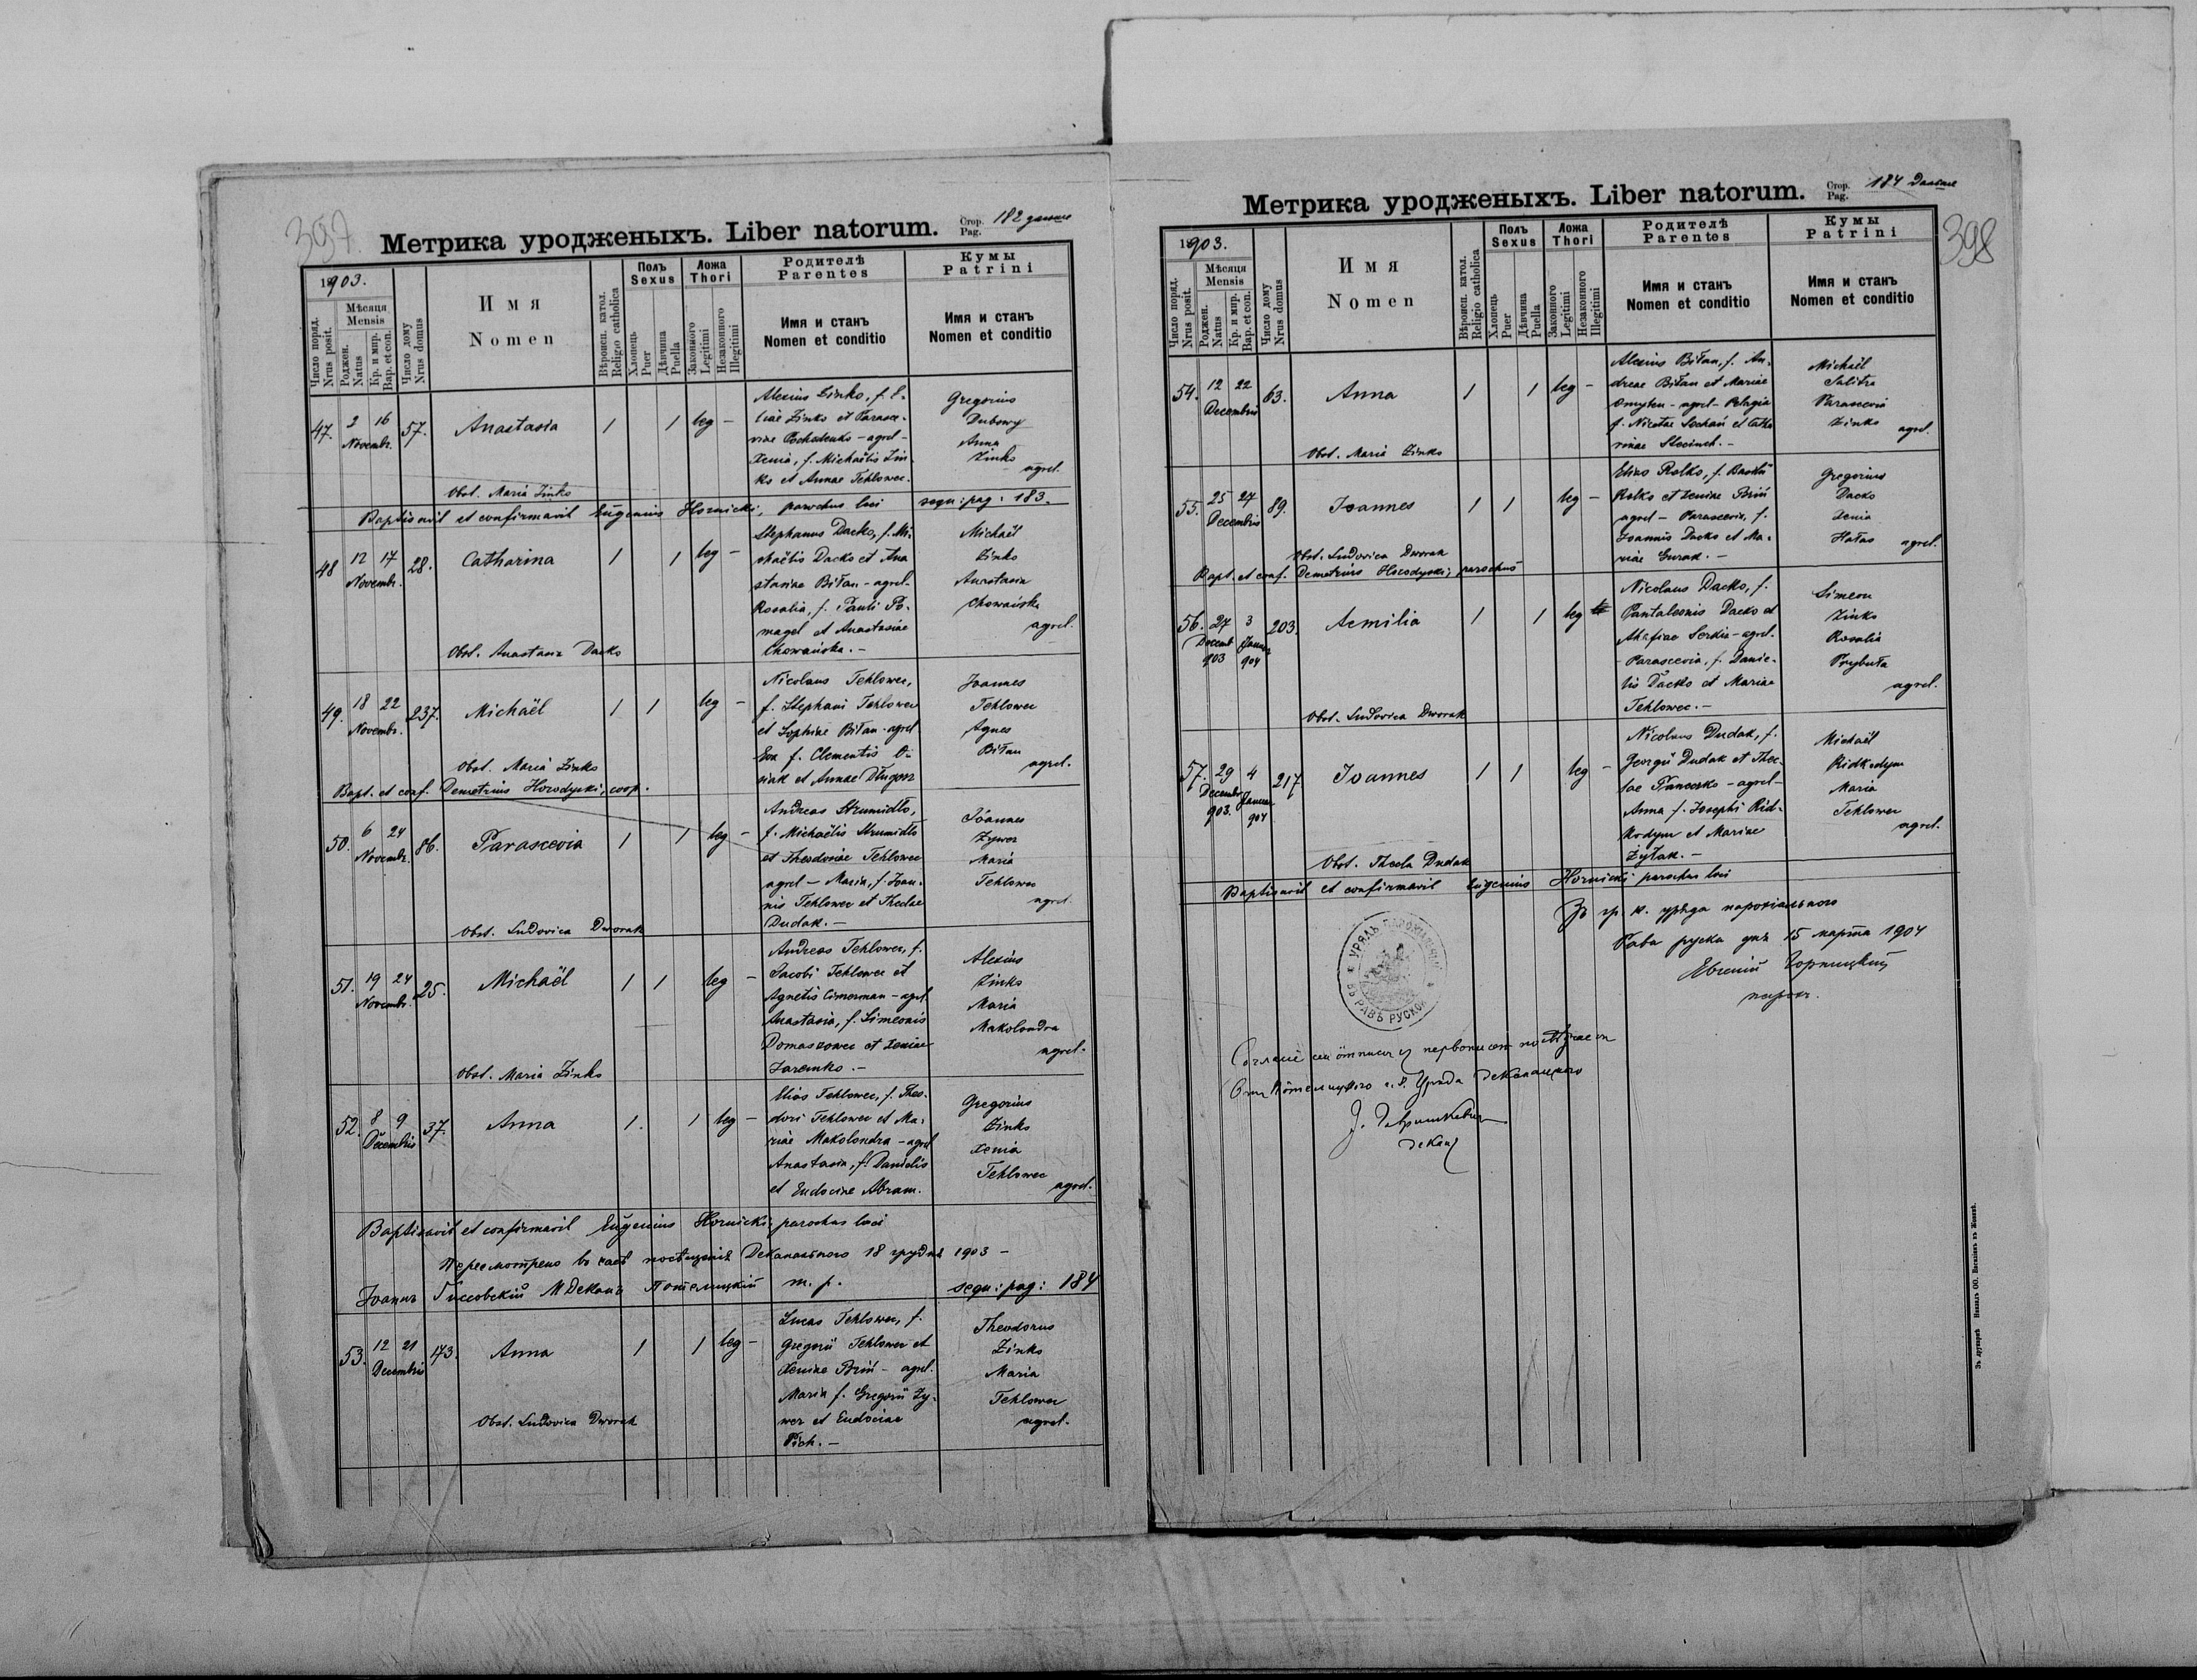 397.
Метрика уродженыхъ. Liber natorum.
Стор. Pag. 182 дальше
1903.
Число поряд. Nrus posit.
Мѣсяця Mensis
Роджен. Natus
Кр. и мир. Bap. et con.
Число дому Nrus domus
Имя Nomen
Вѣроисп. катол. Religio catholica
Полъ Sexus
Хлопець Puer
Дѣвчина Puella
Ложа Thori
Законного Legitimi
Незаконного Illegitimi
Родителѣ Parentes
Имя и станъ Nomen et conditio
Кумы Patrini
Имя и станъ Nomen et conditio
47. 2 16 Novembr. 57. Anastasia 1 1 leg –
Alexius Zinko, f. E-
liae Zinko et Parasce-
viae - agrel -
Xenia, f. Michaëlis Zin-
ko et Annae Tehlowec.
Gregorius
Dubowy
Anna
Zinko
agrel.
Obst. Maria Zinko
Baptisavit et confirmavit Eugenius Hornicki, parochus loci sequ: pag: 183.
48 12 17 Novembr. 28. Catharina 1 1 leg –
Stephanus Dacko, f. Mi-
chaëlis Dacko et Ana
stasiae Biłan - agrel.
Rosalia, f. Pauli Po-
magel et Anastasiae
Chowańska. –
Michaël
Zinko
Anastasia
Chowańska
agrel.
Obst. Anastasia Dacko
49. 18 22 Novembr. 237. Michaël 1 1 leg –
Nicolaus Tehlowec,
f. Stephani Tehlowec
et Sophiae Biłan - agrel
Eva f. Clementis O-
siak et Annae Długosz
Joannes
Tehlowec
Agnes
Biłan
agrel.
Obst. Maria Zinko
Bapt. et conf. Demetrius Horodyski, coop.
50. 6 24 Novembr. 86. Parascevia 1 1 leg –
Andreas Strumidło,
f. Michaëlis Strumidło
et Theodosiae Tehlowec
agrel – Maria, f. Joan-
nis Tehlowec et Theclae
Dudak. –
Joannes
Zywer
Maria
Tehlowec
agrel.
Obst. Ludovica Dworak
51. 19 24 Novembr. 25. Michaël 1 1 leg –
Andreas Tehlowec, f.
Jacobi Tehlowec et
Agnetis Cimerman - agrel.
Anastasia, f. Simeonis
Domaszowec et Xeniae
Jaremko. –
Alexius
Zinko
Maria
Makolondra
agrel.
Obst. Maria Zinko
52. 8 9 Decembris 37. Anna 1. 1 leg –
Elias Tehlowec, f. Theo-
dori Tehlowec et Ma-
riae Makolondra - agrel
Anastasia, f. Danielis
et Eudociae Abram.
Gregorius
Zinko
Xenia
Tehlowec
agrel.
Baptisavit et confirmavit Eugenius Hornicki parochus loci
Пересмотрено во часѣ посѣщенія Деканального 18 грудня 1903 –
Іоаннъ Деканъ Потелицкій m. p. sequ: pag: 184
53. 12 21 Decembris 173. Anna 1 1 leg –
Lucas Tehlowec, f.
Gregorii Tehlowec et
Xeniae Briń - agrel.
Maria f. Gregorii Zy-
wer et Eudociae
Pich. –
Theodorus
Zinko
Maria
Tehlowec
agrel.
Obst. Ludovica Dworak
Метрика уродженыхъ. Liber natorum.
Стор. Pag. 184 Дальше
398
1903.
Число поряд. Nrus posit.
Мѣсяця Mensis
Роджен. Natus
Кр. и мир. Bap. et con.
Число дому Nrus domus
Имя Nomen
Вѣроисп. катол. Religio catholica
Полъ Sexus
Хлопець Puer
Дѣвчина Puella
Ложа Thori
Законного Legitimi
Незаконного Illegitimi
Родителѣ Parentes
Имя и станъ Nomen et conditio
Кумы Patrini
Имя и станъ Nomen et conditio
54. 12 22 Decembris 63. Anna 1 1 leg –
Alexius Biłan, f. An-
dreae Biłan et Mariae
- agrel - Pelagia
f. Nicetae Sochań et Catha
rinae –
Michaël
Salitra
Parascevia
Zinko
agrel.
Obst. Maria Zinko
55. 25 27 Decembris 89. Joannes 1 1 leg –
Elias Rolko, f. Basilii
Rolko et Xeniae Briń
agrel – Parascevia, f.
Joannis Dacko et Ma-
riae Gurak. –
Gregorius
Dacko
Xenia
Hałas
agrel.
Obst. Ludovica Dworak
Bapt. et conf. Demetrius Horodyski, parochus
56. 27 Decemb 903 3 Januar 904 203. Aemilia 1 1 leg
Nicolaus Dacko, f.
Pantaleonis Dacko et
Ahafiae Serkis - agrel.
- Parascevia, f. Danie-
lis Dacko et Mariae
Tehlowec. –
Simeon
Zinko
Rosalia
Przybuła
agrel.
Obst. Ludovica Dworak
57. 29 Decembr 903. 4 Januar 904 217. Joannes 1 1 leg –
Nicolaus Dudak, f.
Georgii Dudak et Thec-
lae - agrel -
Anna f. Josephi Rid-
kodym et Mariae
Żyłak. –
Michaël
Ridkodym
Maria
Tehlowec
agrel.
Obst. Thecla Dudak
Baptisavit et confirmavit Eugenius Hornicki parochus loci
Зъ гр. к. уряда парохіального
Рава руска дня 15 марта 1904
Евгеній Горницкій
парох.
УРЯДЪ ПАРОХІАЛЬНЫЙ ВЪ РАВѢ РУСКОЙ
Отъ Потелицкого г. к. Уряда Деканального
Декан